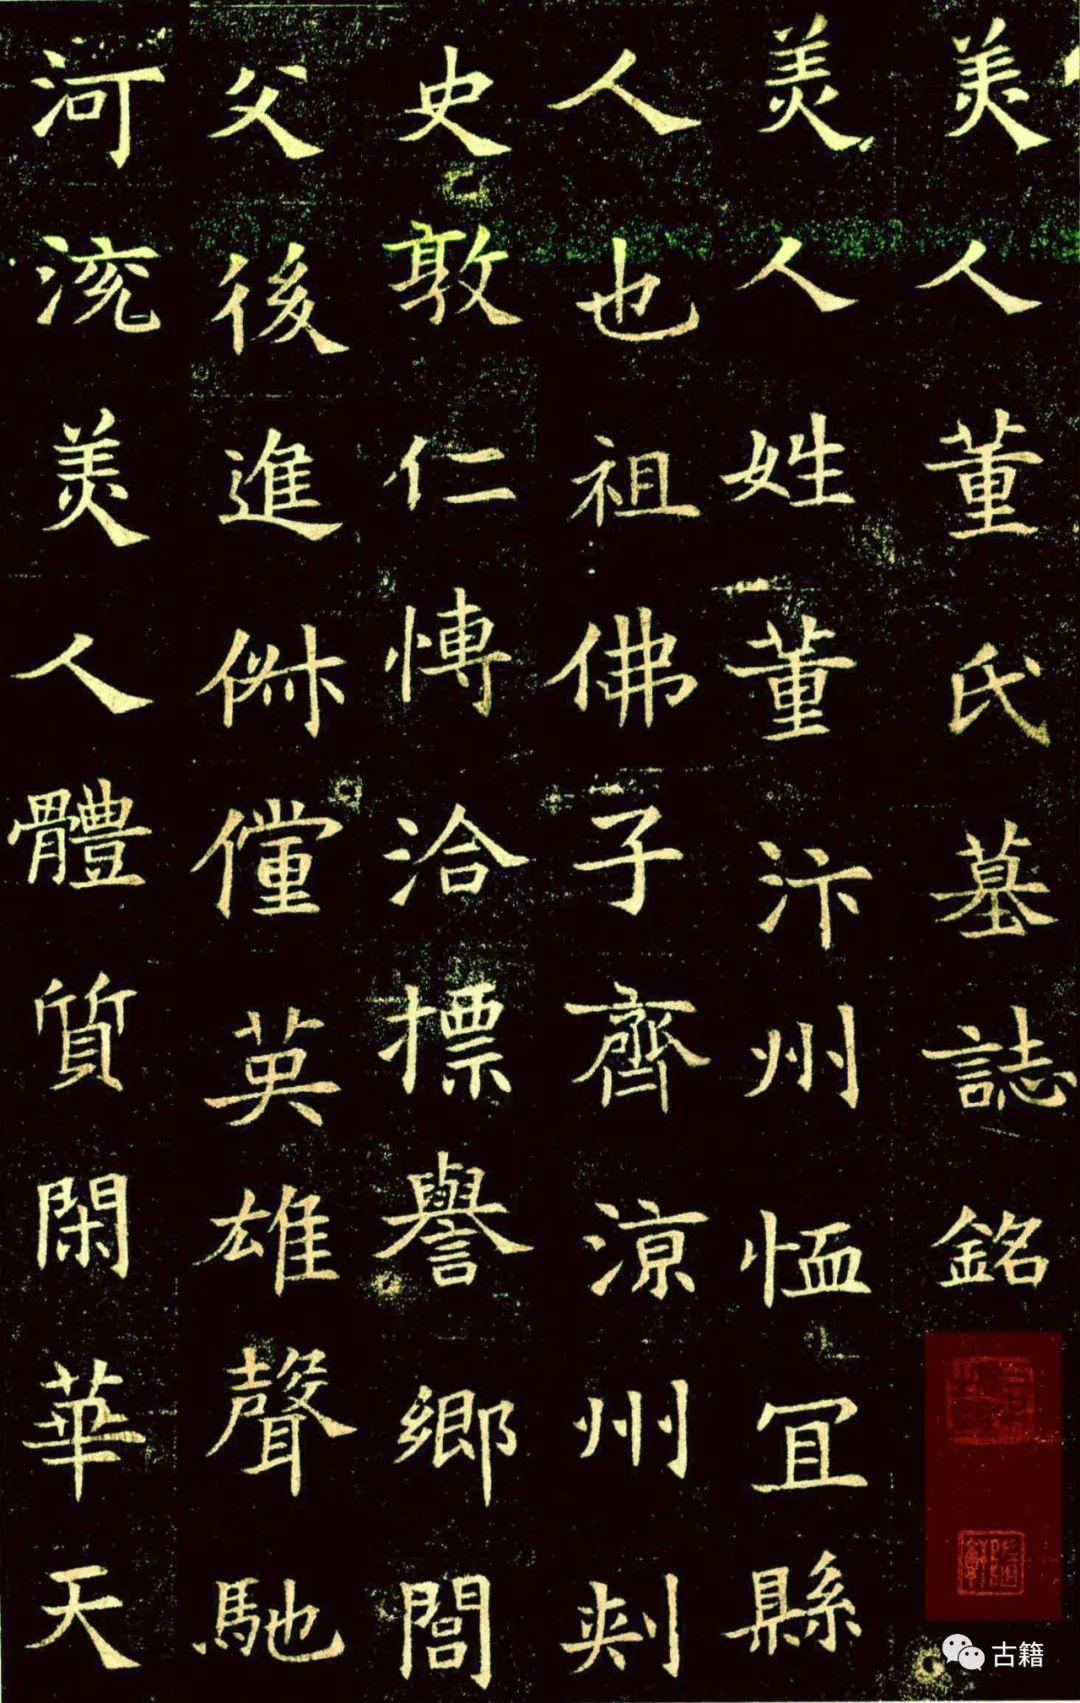 美人董氏墓誌銘
美人姓董汴州恤宜縣
人也祖佛子齊涼州刾
史敦仁慱洽摽譽鄉閭
父後進俶儻英雄聲馳
河兗美人體質閑華天
古籍